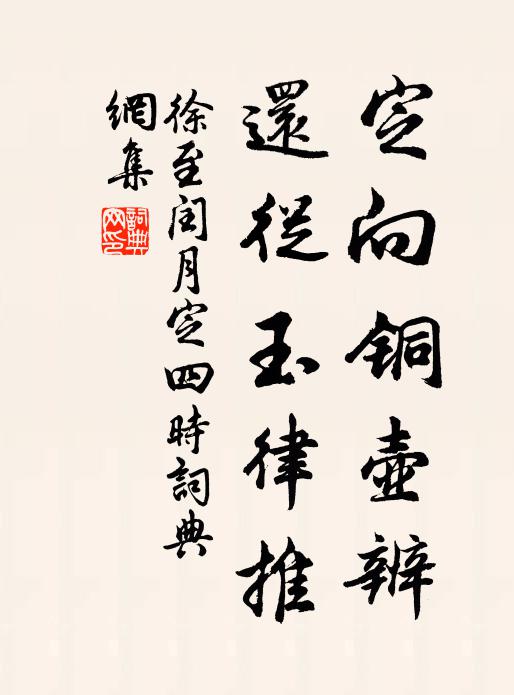 定向銅壺辨
還從玉律推
徐至閏月定四時詞典
網集
詞典網印